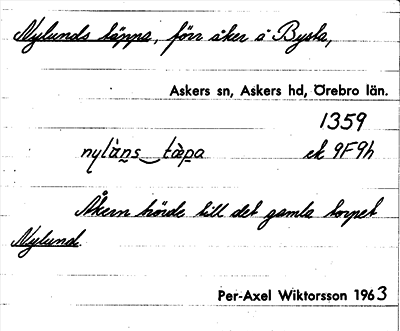 Nylunds täppa, förr åker å Bysta,
Askers sn, Askers hd, Örebro län.
1359
nylàn̥s‿tæ̀pa ek 9F9h
Åkern hörde till det gamla torpet
Nylund.
Per-Axel Wiktorsson 1963